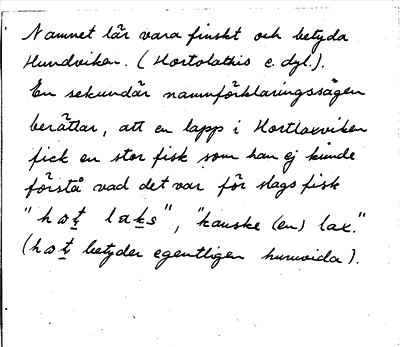 Namnet lär vara finskt och betyda
Hundviken. (Hortolathis e. dyl.).
En sekundär namnförklaringssägen
berättar, att en lapp i Hortlaxviken
fick en stor fisk som han ej kunde
förstå vad det var för slags fisk
"hɔt laks", "kanske (en) lax."
(hɔt betyder egentligen huruvida).